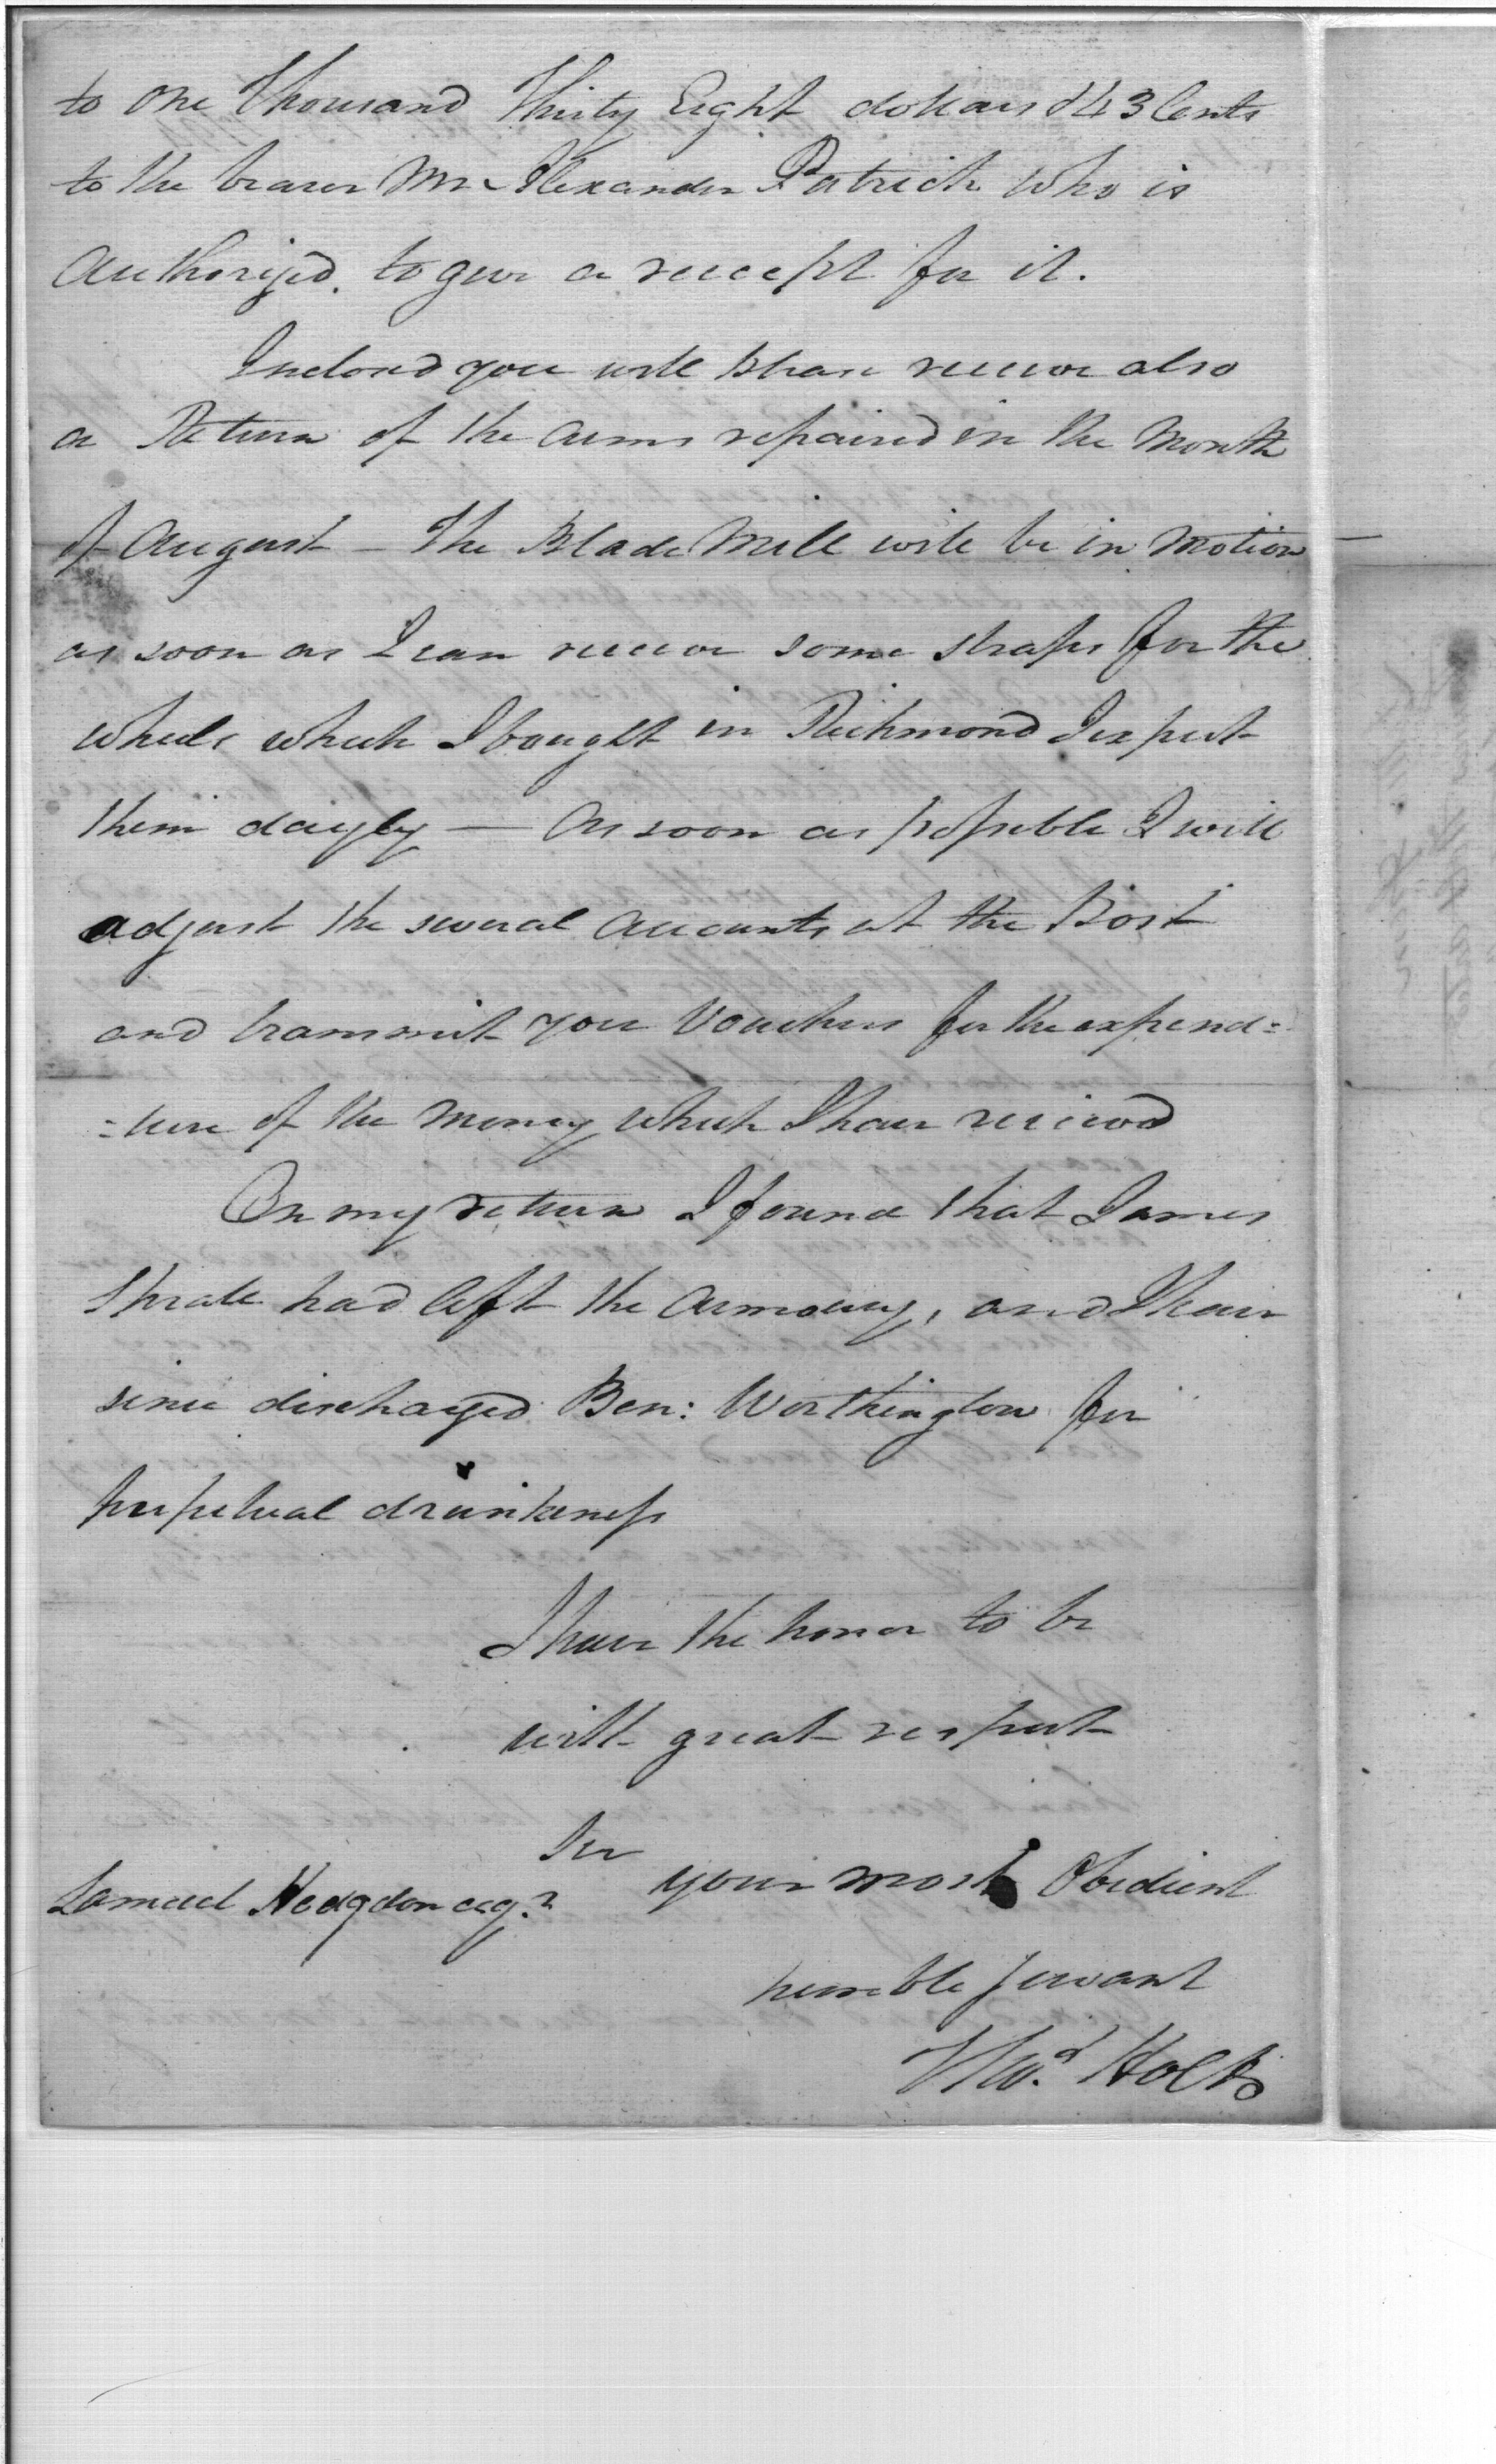 to One Thousand Thirty Eight dollars & 43 Cents
to the bearer Mr Alexander Patrick who is
Authorized to give a receipt for it.
Inclosed you will please receive also
a Return of the Arms repaired in the Month
of August - The Blade Mill will be in Motion
as soon as I can receive some straps for the
wheels which I bought in Richmond I expect
them dayly — As soon as possible I will
adjust the several Accounts at the Post
and transmit you Vouchers for the expend=
=ture of the Money which I have recieved
On my return I found that James
had left the Armoury, and I have
since discharged Ben: Worthington for
perpetual drunkeness
I have the honor to be
with great respect
Sir
your most Obedient
Samuel Hodgdon esqr
humble servant